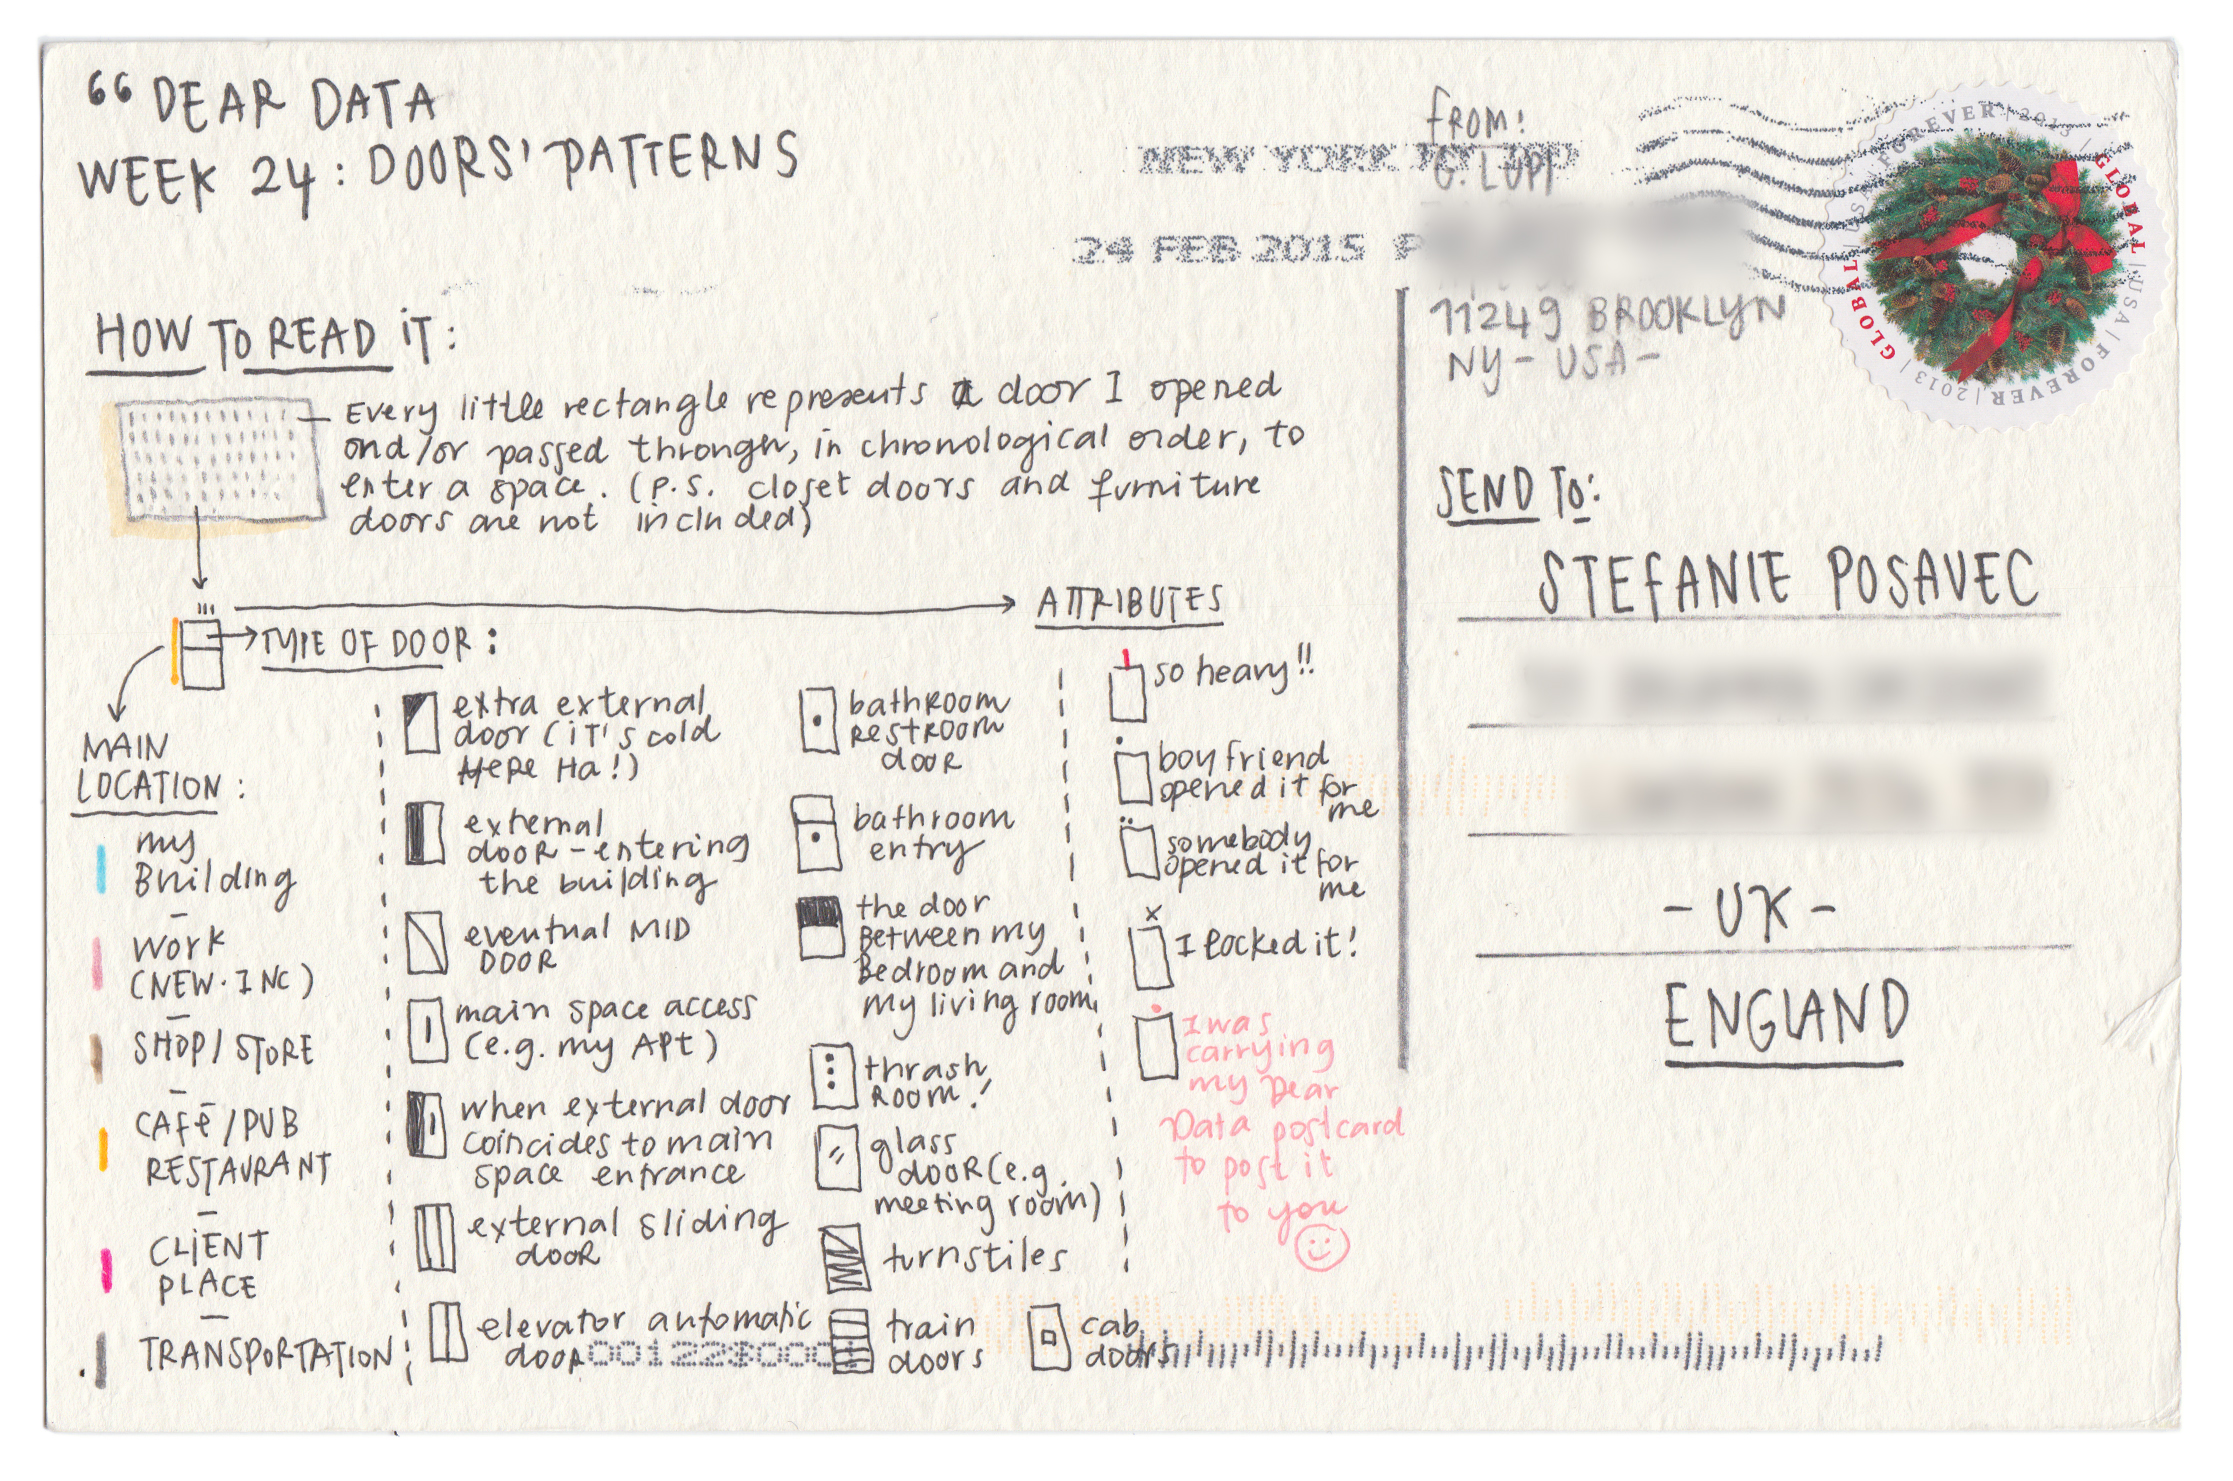 “ DEAR DATA
WEEK 24: DOORS' PATTERNS
HOW TO READ IT:
Every little rectangle represents a door I opened
and/or passed through, in chronological order, to
enter a space. (P.S. closet doors and furniture
doors are not included)
TYPE OF DOOR:
ATTRIBUTES
MAIN
LOCATION:
my
Building
-
WORK
(NEW.INC)
-
SHOP/STORE
-
CAFé/PUB
RESTAURANT
-
CLIENT
PLACE
-
TRANSPORTATION
extra external
door (iT's cold
HERE HA!)
external
dooR-entering
the building
eventual MID
DOOR
main space access
(e.g. my APt)
when external door
coincides to main
space entrance
external sliding
dooR
elevator automatic
dooR
bathROOM
RESTROOM
dooR
bathroom
entry
the door
Between my
Bedroom and
my living room
thrash
Room!
glass
dooR (e.g.
meeting room)
turnstiles
train
doors
cab
doors
so heavy!!
boyfriend
opened it for
me
somebody
opened it for
me
I locked it!
I was
carrying
my Dear
Data postcard
to post it
to you
FROM:
G. LUPI
11249 BROOKLYN
NY - USA -
NEW YORK NY 100
24 FEB 2015 P
GLOBAL | USA | FOREVER | 2013 | GLOBAL | USA | FOREVER | 2013 |
SEND TO:
STEFANIE POSAVEC
- UK -
ENGLAND